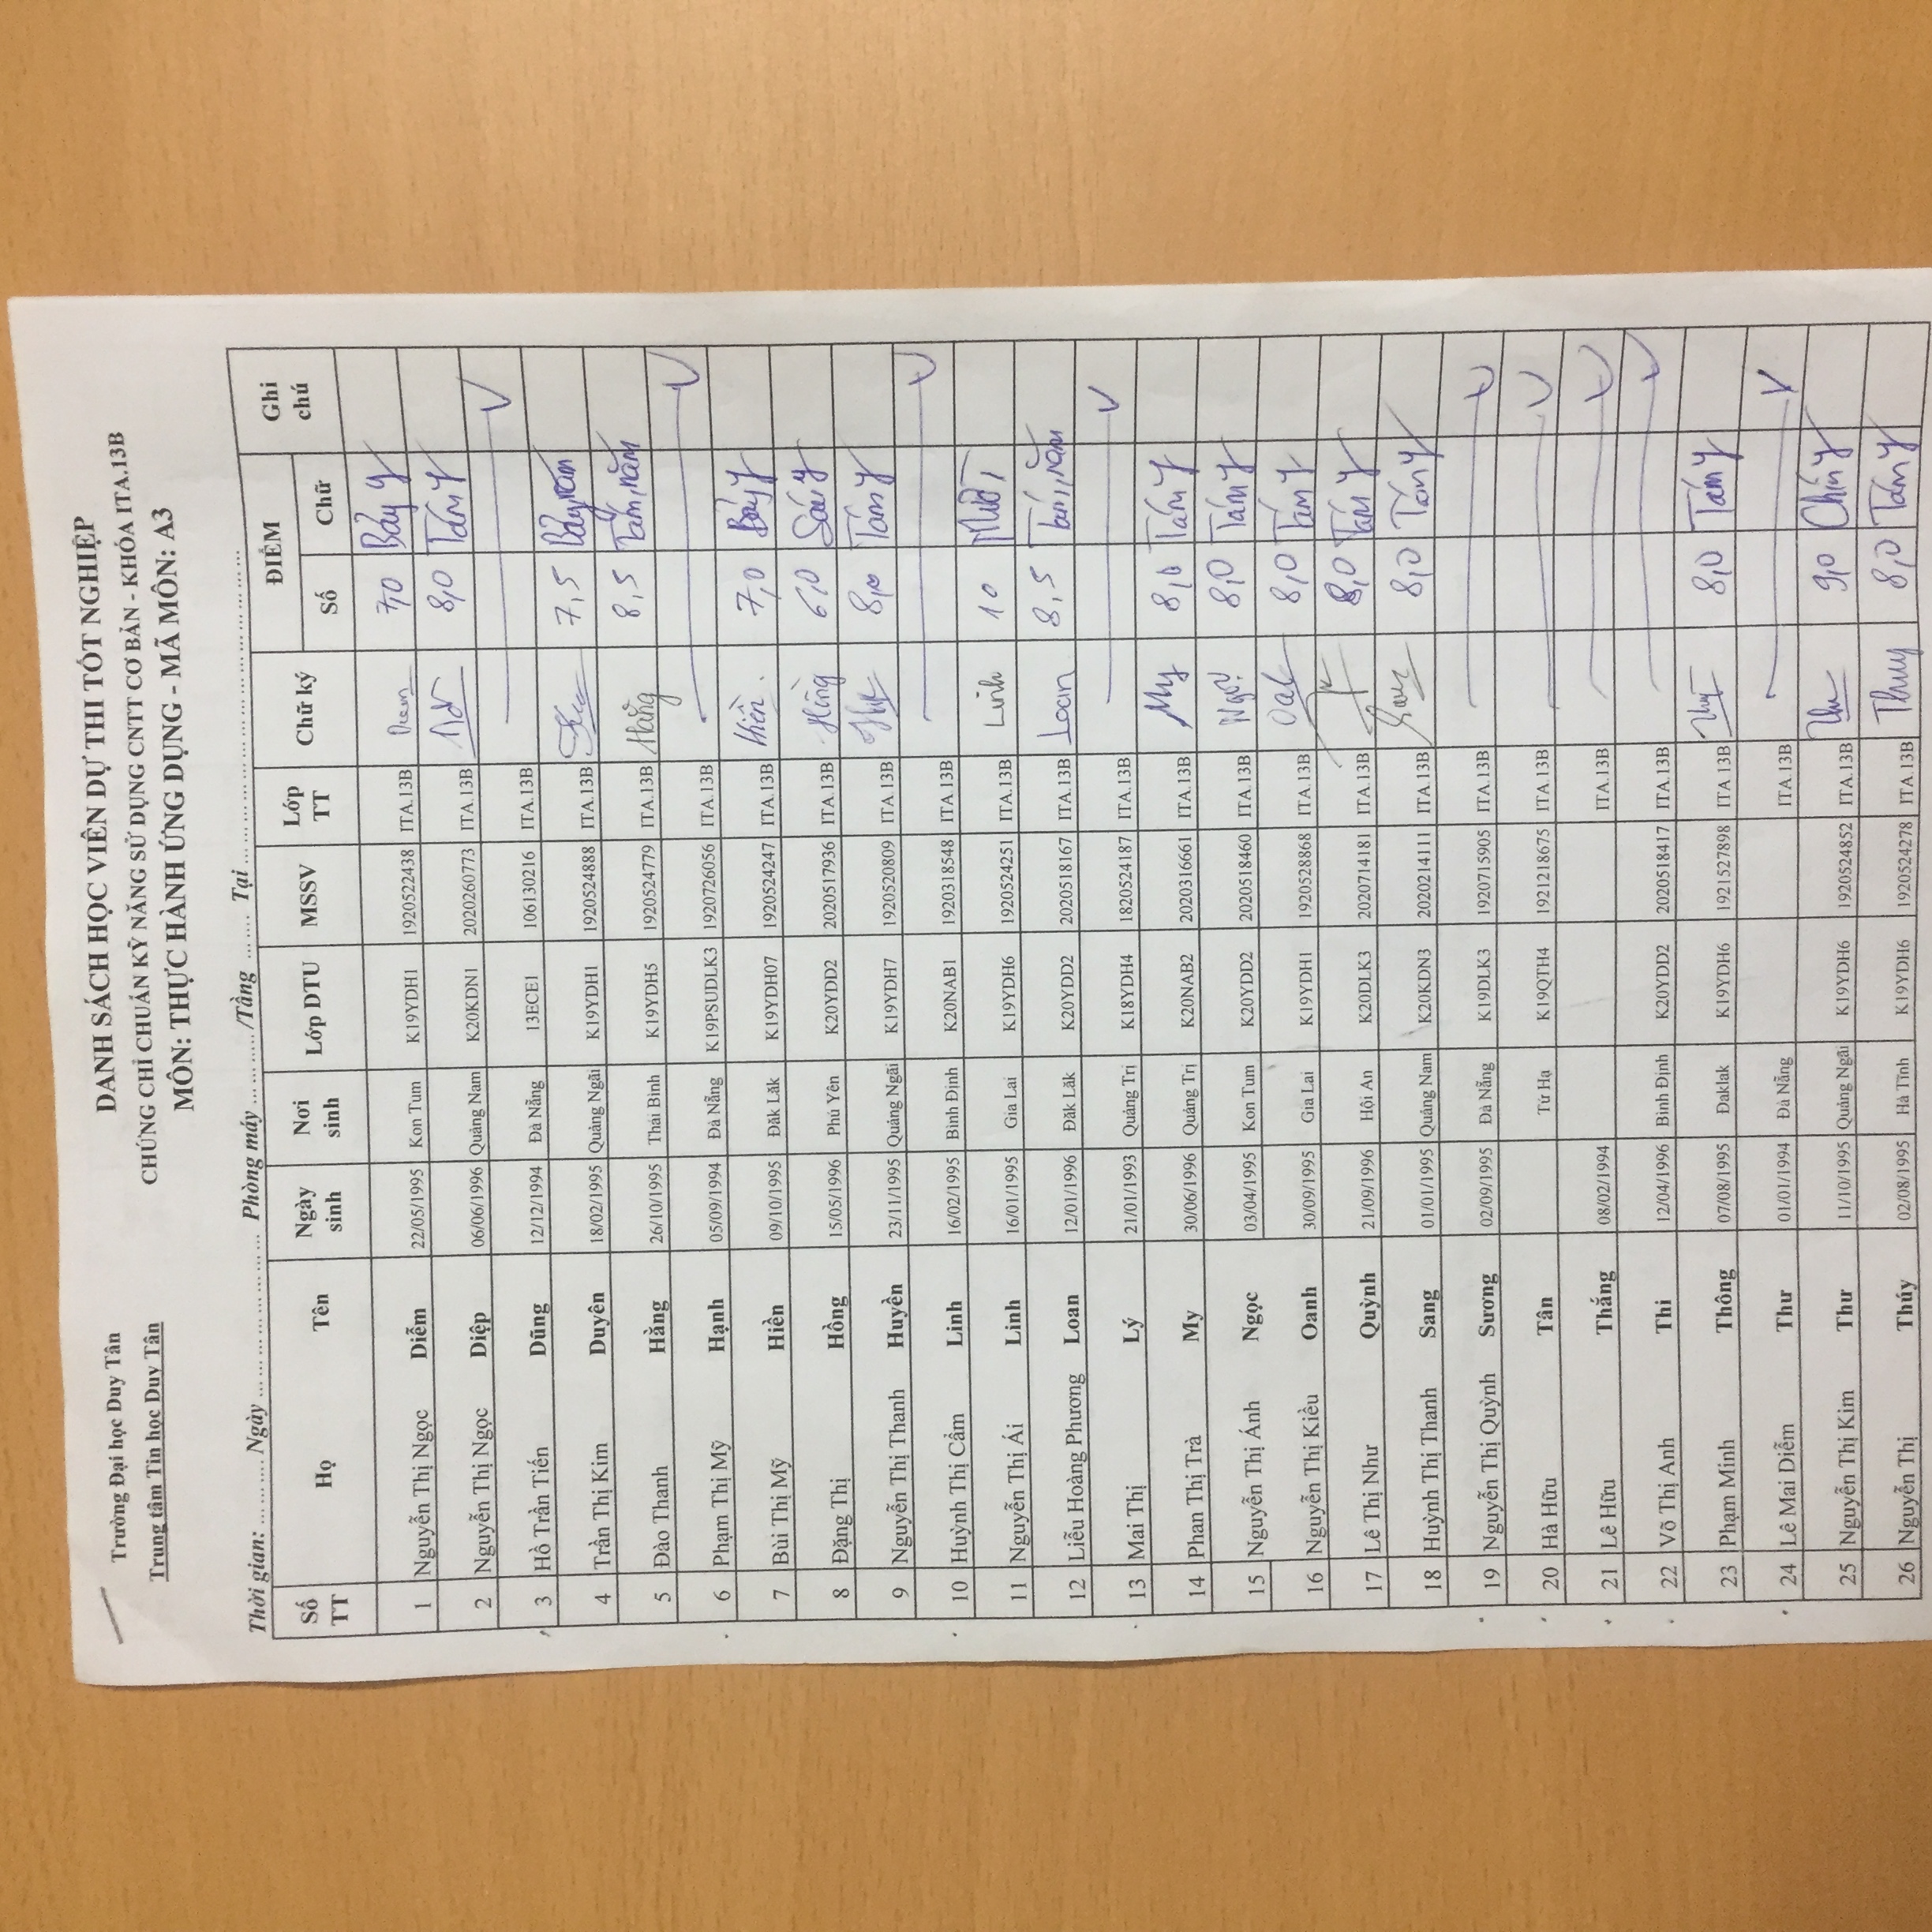 Trường Đại học Duy Tân
Trung tâm Tin học Duy Tân
DANH SÁCH HỌC VIÊN DỰ THI TỐT NGHIỆP
CHỨNG CHỈ CHUẨN KỸ NĂNG SỬ DỤNG CNTT CƠ BẢN - KHÓA ITA.13B
MÔN: THỰC HÀNH ỨNG DỤNG - MÃ MÔN: A3
Thời gian: ………. Ngày ………………… Phòng máy …………/Tầng …… Tại ………………………
Số TT Họ Tên Ngày sinh Nơi sinh Lớp DTU MSSV Lớp TT Chữ ký ĐIỂM Số Chữ Ghi chú
1 Nguyễn Thị Ngọc Diễm 22/05/1995 Kon Tum K19YDH1 1920522438 ITA.13B 7,0 Bảy
2 Nguyễn Thị Ngọc Diệp 06/06/1996 Quảng Nam K20KDN1 2020260773 ITA.13B 8,0 Tám
3 Hồ Trần Tiến Dũng 12/12/1994 Đà Nẵng 13ECE1 106130216 ITA.13B V
4 Trần Thị Kim Duyên 18/02/1995 Quảng Ngãi K19YDH1 1920524888 ITA.13B 7,5 Bảy,năm
5 Đào Thanh Hằng 26/10/1995 Thái Bình K19YDH5 1920524779 ITA.13B Hằng 8,5 Tám,năm
6 Phạm Thị Mỹ Hạnh 05/09/1994 Đà Nẵng K19PSUDLK3 1920726056 ITA.13B V
7 Bùi Thị Mỹ Hiền 09/10/1995 Đăk Lăk K19YDH07 1920524247 ITA.13B Hiền 7,0 Bảy
8 Đặng Thị Hồng 15/05/1996 Phú Yên K20YDD2 2020517936 ITA.13B Hồng 6,0 Sáu
9 Nguyễn Thị Thanh Huyền 23/11/1995 Quảng Ngãi K19YDH7 1920520809 ITA.13B 8,0 Tám
10 Huỳnh Thị Cẩm Linh 16/02/1995 Bình Định K20NAB1 1920318548 ITA.13B V
11 Nguyễn Thị Ái Linh 16/01/1995 Gia Lai K19YDH6 1920524251 ITA.13B Linh 10 Mười
12 Liễu Hoàng Phương Loan 12/01/1996 Đăk Lăk K20YDD2 2020518167 ITA.13B Loan 8,5 Tám,năm
13 Mai Thị Lý 21/01/1993 Quảng Trị K18YDH4 1820524187 ITA.13B V
14 Phan Thị Trà My 30/06/1996 Quảng Trị K20NAB2 2020316661 ITA.13B My 8,0 Tám
15 Nguyễn Thị Ánh Ngọc 03/04/1995 Kon Tum K20YDD2 2020518460 ITA.13B Ngọc 8,0 Tám
16 Nguyễn Thị Kiều Oanh 30/09/1995 Gia Lai K19YDH1 1920528868 ITA.13B 8,0 Tám
17 Lê Thị Như Quỳnh 21/09/1996 Hội An K20DLK3 2020714181 ITA.13B 8,0 Tám
18 Huỳnh Thị Thanh Sang 01/01/1995 Quảng Nam K20KDN3 2020214111 ITA.13B 8,0 Tám
19 Nguyễn Thị Quỳnh Sương 02/09/1995 Đà Nẵng K19DLK3 1920715905 ITA.13B V
20 Hà Hữu Tân Tứ Hạ K19QTH4 1921218675 ITA.13B V
21 Lê Hữu Thắng 08/02/1994 ITA.13B V
22 Võ Thị Anh Thi 12/04/1996 Bình Định K20YDD2 2020518417 ITA.13B V
23 Phạm Minh Thông 07/08/1995 Đaklak K19YDH6 1921527898 ITA.13B 8,0 Tám
24 Lê Mai Diễm Thư 01/01/1994 Đà Nẵng ITA.13B V
25 Nguyễn Thị Kim Thư 11/10/1995 Quảng Ngãi K19YDH6 1920524852 ITA.13B Thư 9,0 Chín
26 Nguyễn Thị Thúy 02/08/1995 Hà Tĩnh K19YDH6 1920524278 ITA.13B Thuy 8,0 Tám